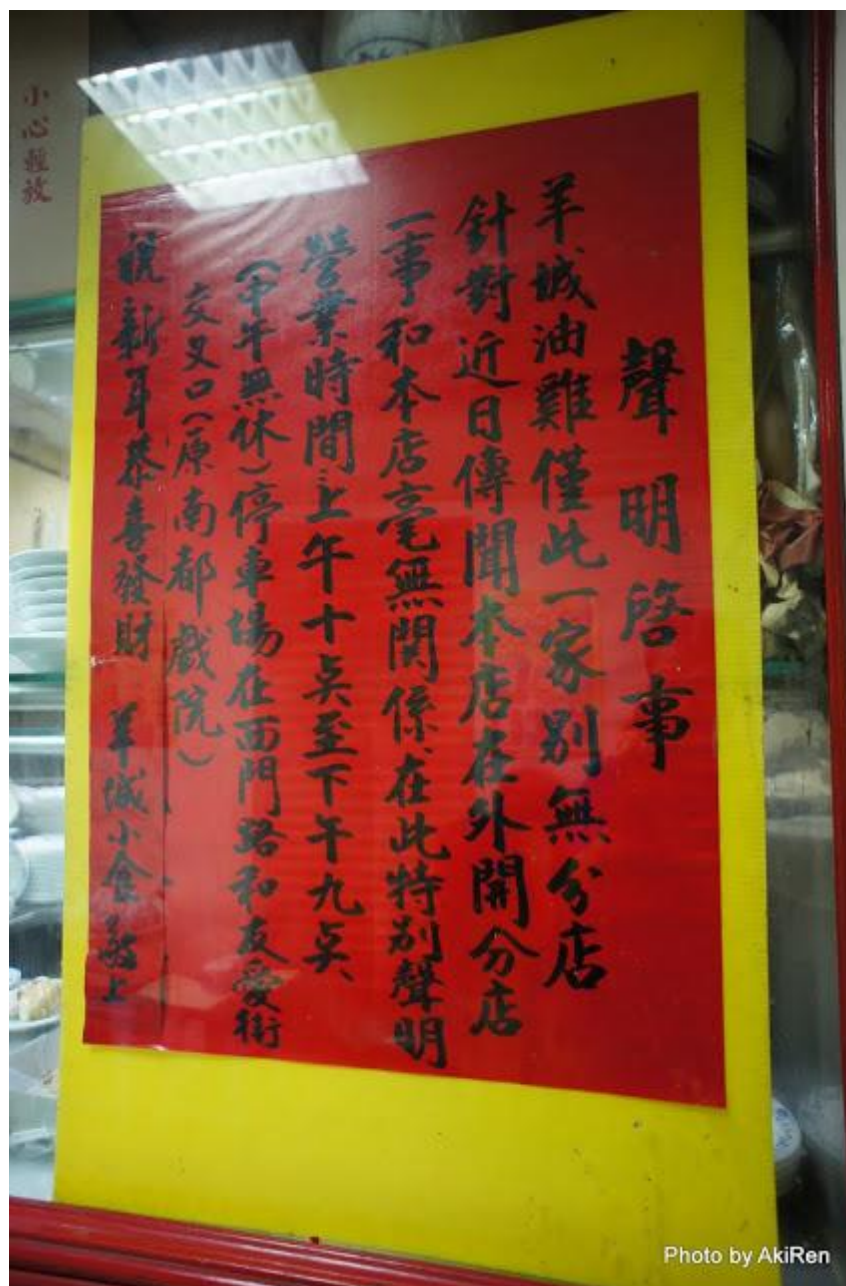 聲明啓事
羊城油雞僅此一家別無分店
針對近日傳聞本店在外開分店
一事和本店毫無関係、在此特別聲明
營業時間：上午十点至下午九点、
（中午無休）停車場在西門路和友愛街
交叉口（原南都戲院）
祝新年恭喜發財 羊城小食敬上
小心輕放
Photo by AkiRen